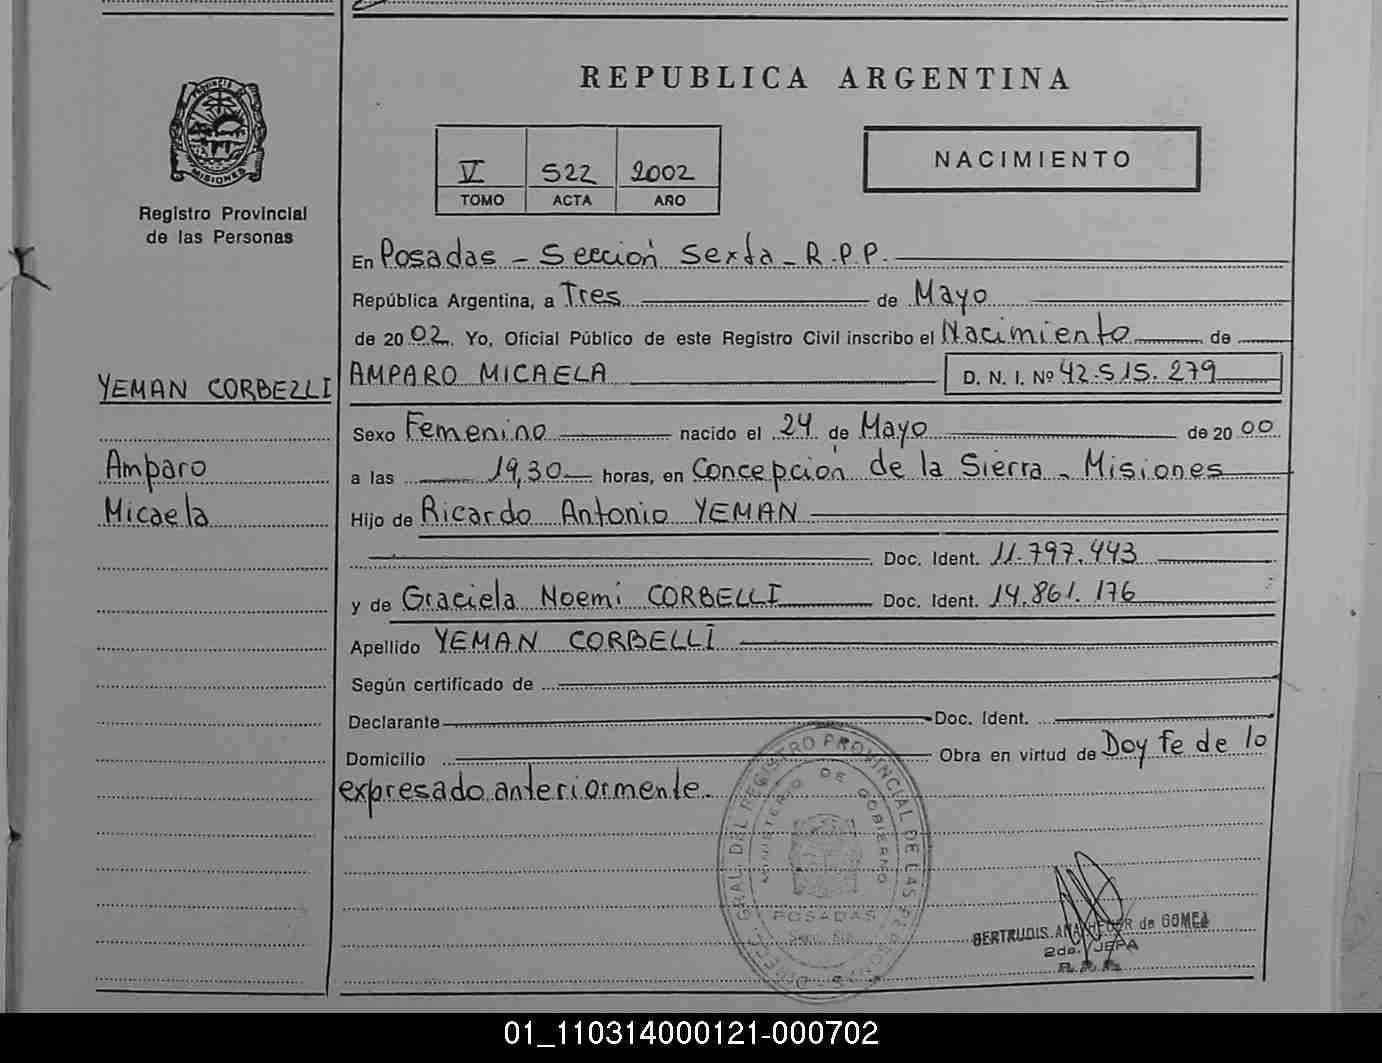 PROVINCIA DE
MISIONES
Registro Provincial
de las Personas
YEMAN CORBELLI
Amparo
Micaela
REPUBLICA ARGENTINA
V 522 2002
TOMO ACTA AÑO
NACIMIENTO
En Posadas - Sección Sexta - R.P.P.
República Argentina, a Tres de Mayo
de 2002. Yo, Oficial Público de este Registro Civil inscribo el Nacimiento de
AMPARO MICAELA D. N. I. Nº 42.515.279
Sexo Femenino nacido el 24 de Mayo de 2000
a las 19,30 horas, en Concepción de la Sierra - Misiones
Hijo de Ricardo Antonio YEMAN
Doc. Ident. 11.797.443
y de Graciela Noemi CORBELLI Doc. Ident. 14.861.176
Apellido YEMAN CORBELLI
Según certificado de
Declarante Doc. Ident.
Domicilio Obra en virtud de Doy fe de lo
expresado anteriormente.
DIRECC. GRAL. DEL REGISTRO PROVINCIAL DE LAS PERSONAS
MINISTERIO DE GOBIERNO
POSADAS
GERTRUDIS ANA de GOMEZ
2da. JEFA
R.P.P.
01_110314000121-000702